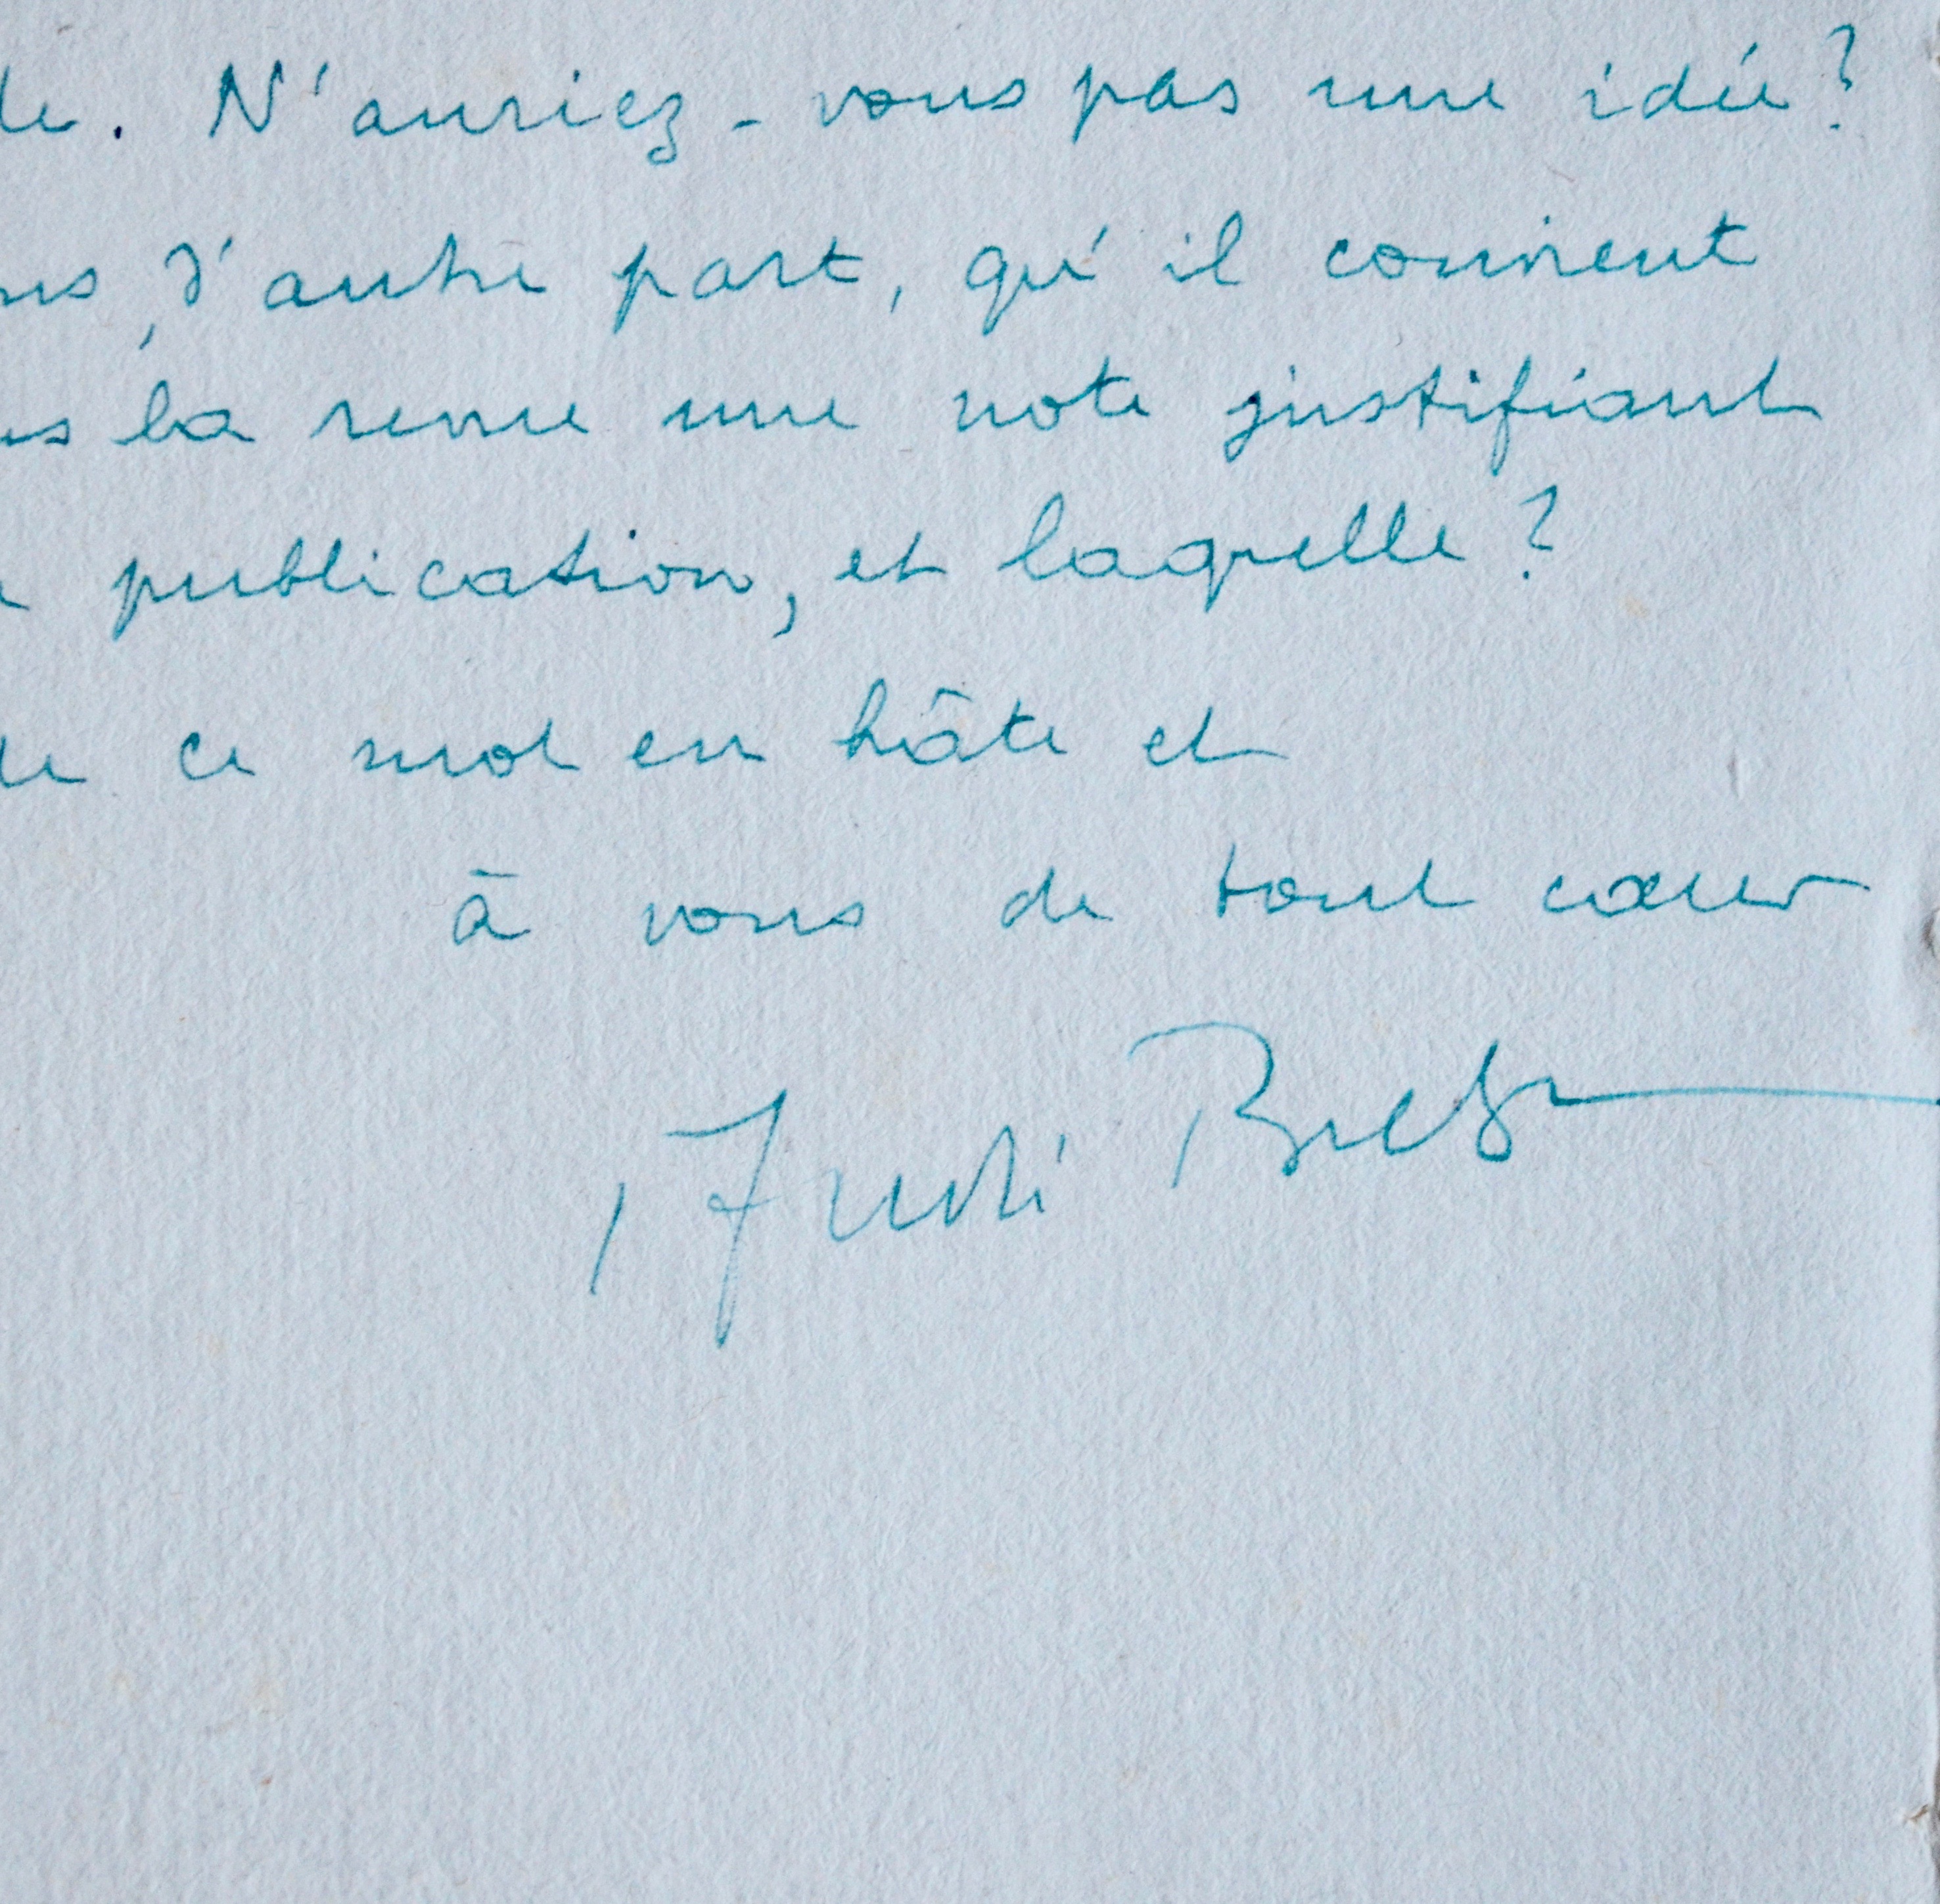 de. N'auriez-vous pas une idée?
ns, d'autre part, qu'il convient
ns la revue une note justifiant
publication, et laquelle?
de ce mot en hâte et
à vous de tout cœur
André Breton